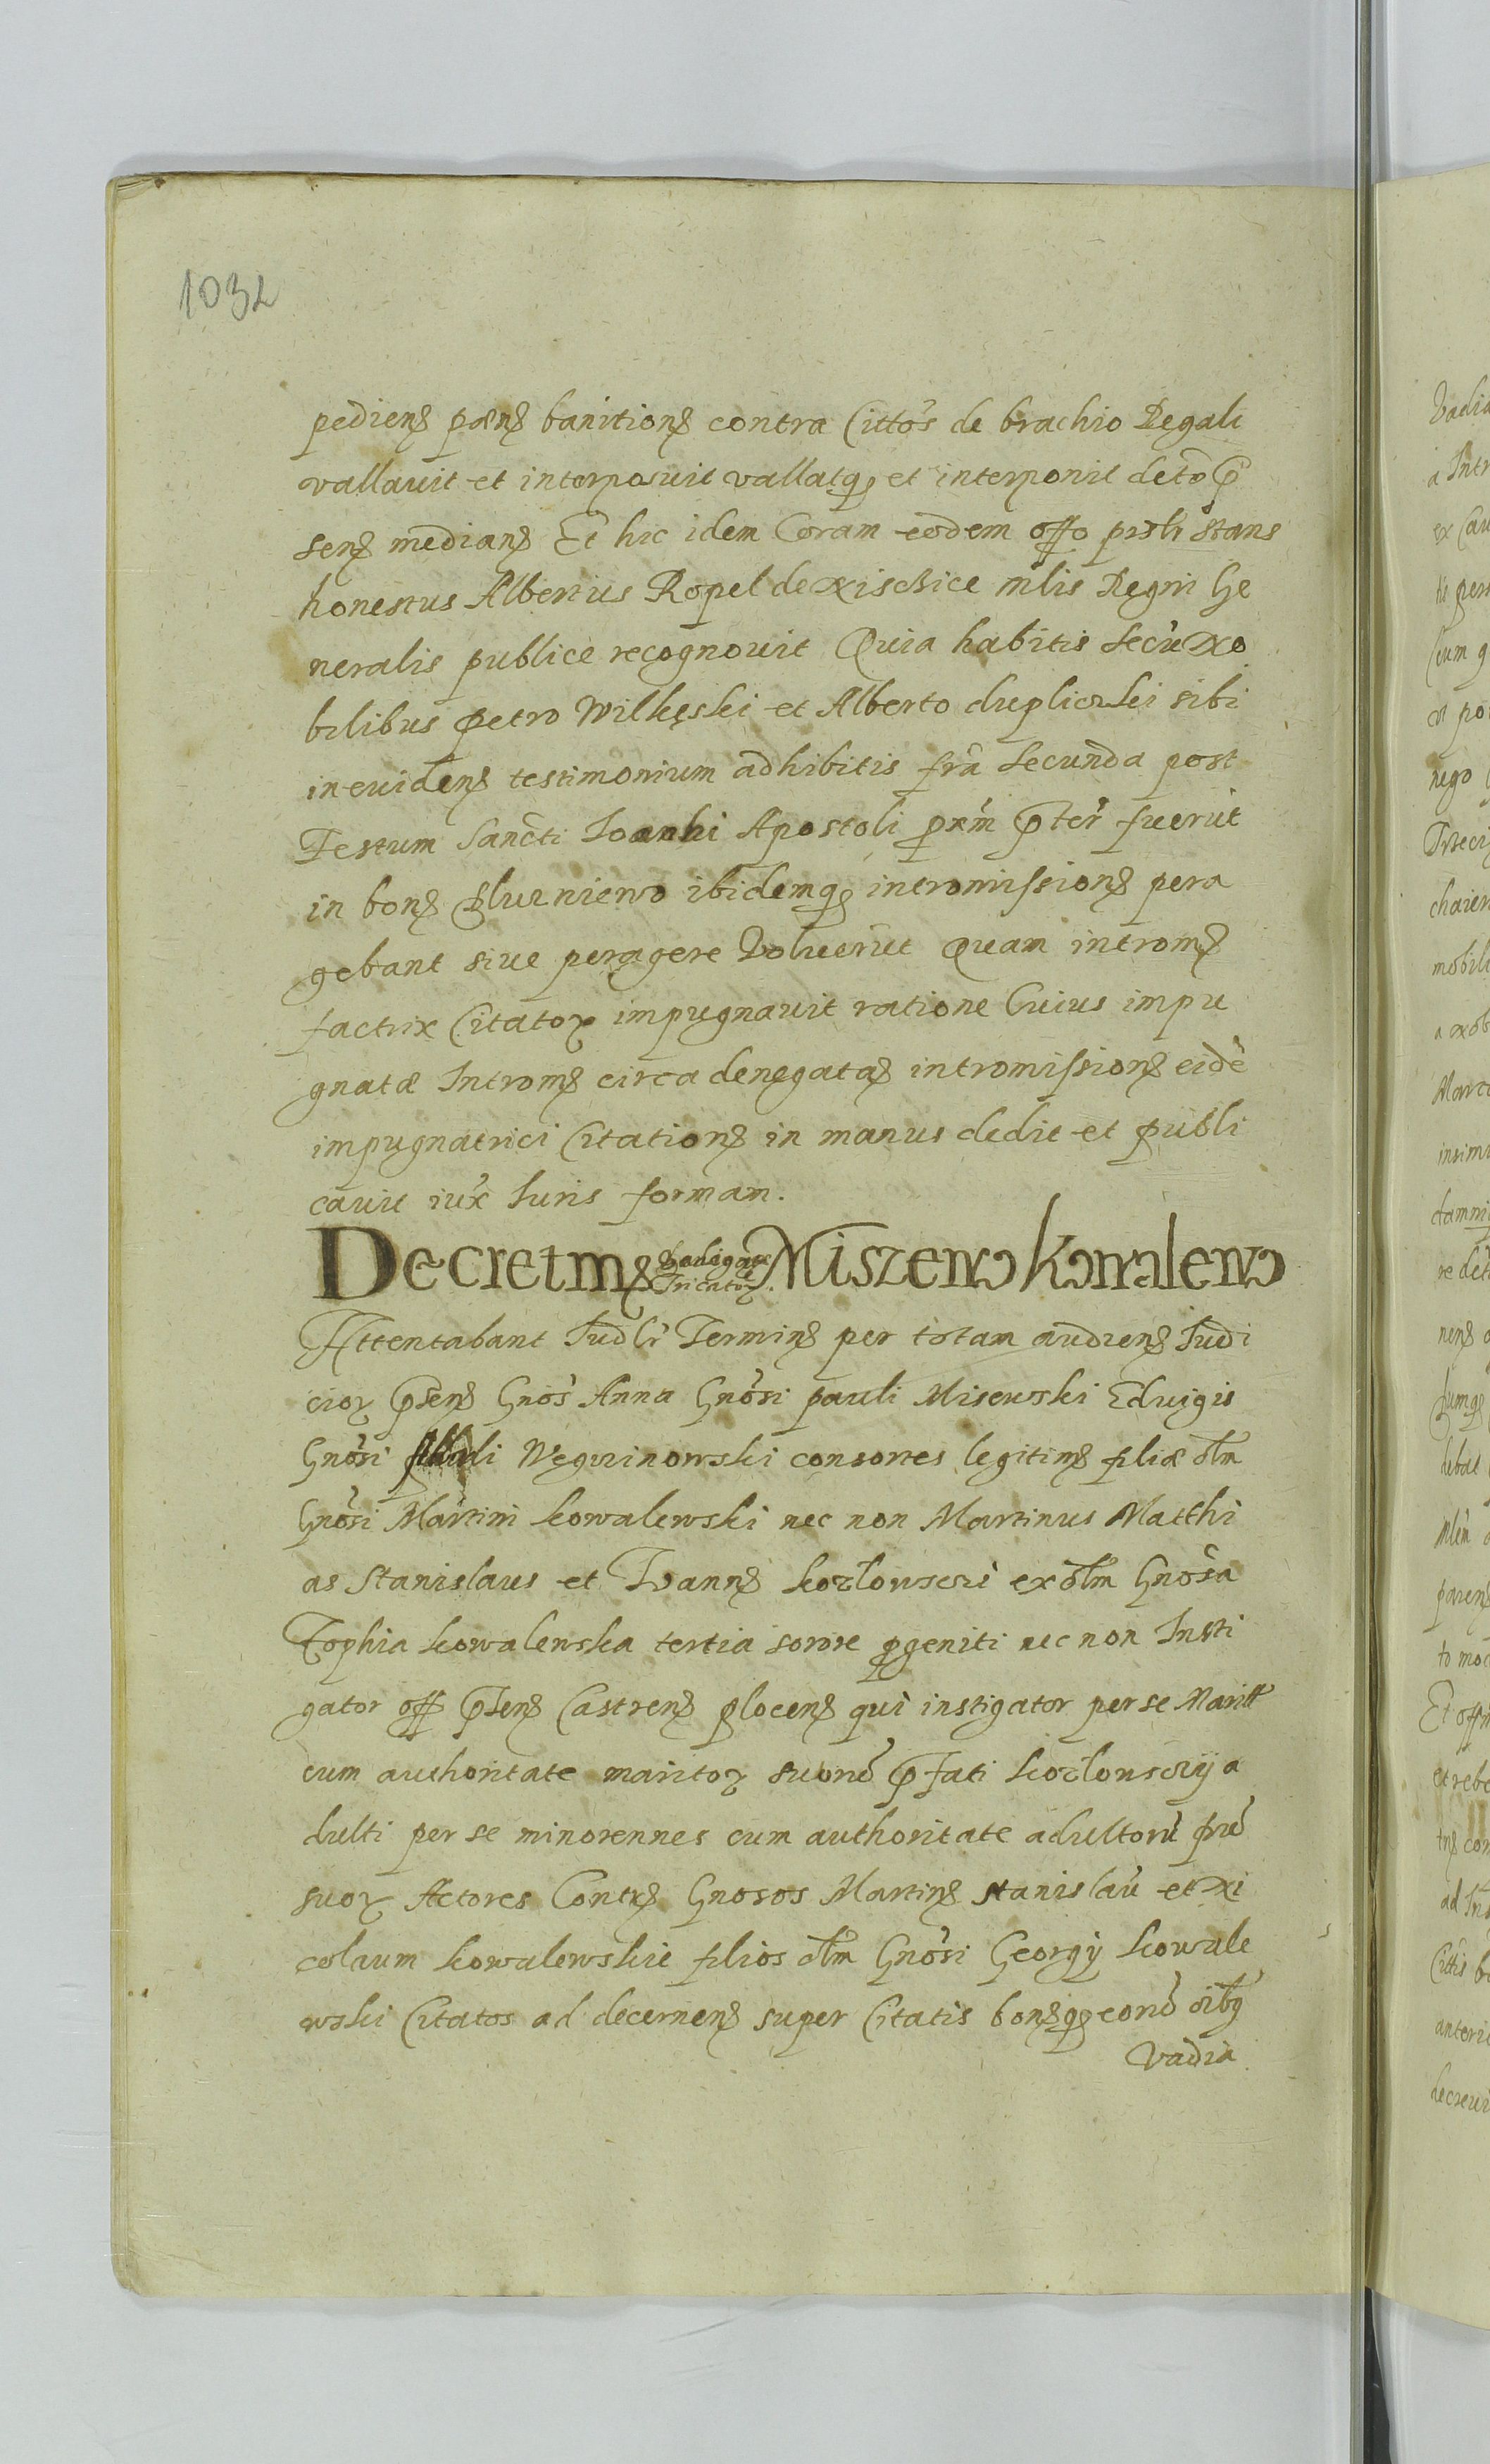 1032
pediens pæns banitions contra Cittos de brachio Regali
vallavit et interposuit vallatq et interponit deto p
sens medians Et hic idem Coram eodem offo prsli stans
honestus Albertus Ropel de Nischice mlis Regni Ge
neralis publice recognovit Quia habitis secū No
bilibus Petro Wilkęski et Alberto duplicski sibi
in evidens testimonium adhibitis fra secunda post
Festum Sancti Ioanni Apostoli pxm pter fuerūt
in bons ibidemq intromissions pera
gebant sive peragere voluerūt Quam introms
factrix Citator impugnavit ratione Cuius impu
gnatæ Introms circa denegatas intromissions eidē
impugnatrici Citations in manus dedit et publi
cavit iux Iuris formam.
Decretms Miszewo Kowalewo
Attentabant Iudli Termins per totam audiens Iudi
cior psens Gnos Anna Gnosi Pauli Misewski Edvigis
Gnosi consortes legitims filiæ olm
Gnosi Martini Kowalewski nec non Martinus Matthi
as Stanislaus et Ioanns Kozlowsczi ex olm Gnosa
Zophia Kowalewska tertia sorore pgeniti nec non Insti
gator off psens Castrens Plocens qui instigator per se Maritt
cum authoritate maritor suorū pfati Kozlowsczij a
dulti per se minorennes cum authoritate adultorū frū
suor Actores Contrs Gnosos Martins Stanislaū et Ni
colaum Kowalewskie filios olm Gnosi Georgij Kowale
wski Citatos ad decernens super Citatis bonsq eorū oibq
Vadia